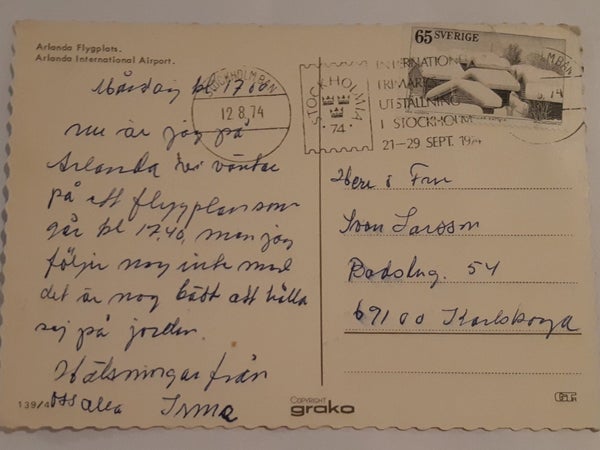 Arlanda Flygplats.
Arlanda International Airport.
Måndag kl 17 00
nu är jag på
Arlanda vi väntar
på att flygplan som
går kl 17.40, men jag
följer nog inte med
det är nog bäst att hålla
sej på jorden.
Hälsningar från
oss alla Irma
139/4
COPYRIGHT
grako
STOCKHOLM BAN
12 8.74
STOCKHOLMIA
74
INTERNATIONE
FRIMÄRKS
UTSTÄLLNING
I STOCKHOLM
21-29 SEPT. 1974
65 SVERIGE
M BAN
8.74
Herr o Fru
Sven Larsson
54
69100 Karlskoga